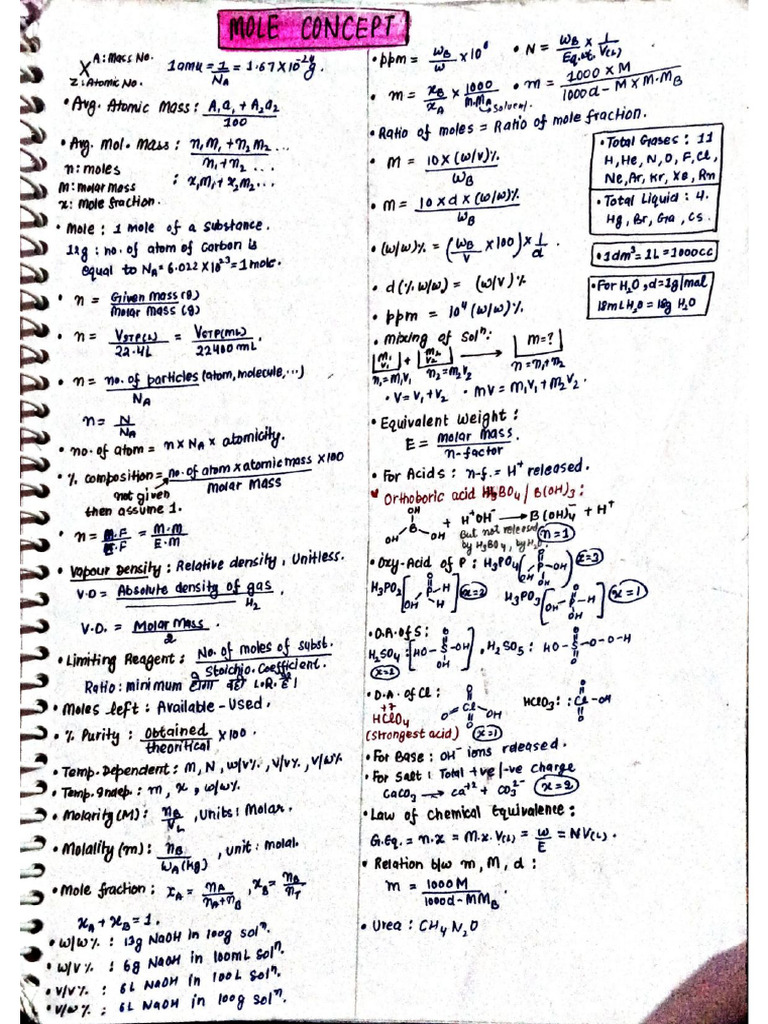 MOLE CONCEPT
X A: Mass No.
Z: Atomic No.
1amu = 1/N_A = 1.67×10^-24 g.
• Avg. Atomic Mass: (A₁a₁ + A₂a₂)/100
• Avg. Mol. Mass: (n₁M₁ + n₂M₂ ...)/(n₁+n₂ ...)
n: moles
M: molar mass : x₁M₁ + x₂M₂...
x: Mole fraction.
• Mole: 1 mole of a substance.
12g: no. of atom of carbon is
equal to N_A = 6.022×10^23 = 1 mole.
• n = Given mass(g)/Molar Mass(g)
• n = V_STP(L)/22.4L = V_STP(mL)/22400mL
• n = no. of particles (atom, molecule, ...)/N_A
n = N/N_A
• no. of atom = n × N_A × atomicity.
• % composition = (no. of atom × atomic mass)/Molar Mass × 100
not given
then assume 1.
• n = M.F/E.F = M.M/E.M
• Vapour Density: Relative density, Unitless.
V.D = Absolute density of gas/H₂.
V.D. = Molar Mass/2
• Limiting Reagent: No. of moles of subst./Stoichio. Coefficient.
Ratio: minimum होगा वही L.R. है।
• Moles left: Available - Used.
• % Purity: obtained/theoritical × 100.
• Temp. Dependent: M, N, w/v%, v/v%, v/w%
• Temp. Indep.: m, x, w/w%.
• Molarity (M): n_B/V_L, Units: Molar.
• Molality (m): n_B/W_A(kg), unit: molal.
• Mole fraction: x_A = n_A/(n_A+n_B), x_B = n_B/n_T
x_A + x_B = 1.
• w/w%: 13g NaOH in 100g solⁿ.
• w/v%: 6g NaOH in 100mL solⁿ.
• v/v%: 6L NaOH in 100L solⁿ.
• v/w%: 6L NaOH in 100g solⁿ.
• ppm = w_B/w × 10⁶ • N = w_B/Eq.wt. × 1/V(L)
• m = x_B/x_A × 1000/M.M_A → Solvent. • m = 1000×M/(1000d - M×M.M_B)
• Ratio of moles = Ratio of mole fraction.
• M = 10×(w/v)%/w_B
• M = 10×d×(w/w)%/w_B
• (w/w)% = (w_B/V × 100) × 1/d.
• d(% w/w) = (w/v)%
• ppm = 10⁴(w/w)%.
• Total Gases: 11
H, He, N, O, F, Cl,
Ne, Ar, Kr, Xe, Rn
• Total Liquid: 4.
Hg, Br, Ga, Cs.
• 1dm³ = 1L = 1000cc
• For H₂O, d=1g/mol
18mL H₂O = 18g H₂O
• mixing of Solⁿ:
M₁ V₁ + M₂ V₂ → M=?
n₁=M₁V₁ n₂=M₂V₂ n=n₁+n₂
• V = V₁+V₂ • MV = M₁V₁+M₂V₂.
• Equivalent Weight:
E = Molar Mass/n-factor.
• For Acids: n-f. = H⁺ released.
• Orthoboric acid H₃BO₄ / B(OH)₃:
OH
B
OH OH + H⁺OH⁻ → B(OH)₄⁻ + H⁺
But not released
by H₃BO₄, by H₂O. n=1
• Oxy-Acid of P: H₃PO₄ (O P OH OH OH) x=3
H₃PO₂ [O OH P H H] x=2 H₃PO₃ [O OH P H OH] x=1
• O.A. of S:
H₂SO₄: [HO-S-OH O OH], H₂SO₅: HO-S-O-O-H O O
x=2
• O.A. of Cl:
+7
HClO₄ O Cl O O OH HClO₃: :Cl-OH O O
(strongest acid) x=1
• For Base: OH⁻ ions released.
• For Salt: Total +ve/-ve charge
CaCO₃ → Ca⁺² + CO₃²⁻ x=2
• Law of Chemical Equivalence:
G.Eq. = n.x = M.x.V(L) = w/E = NV(L).
• Relation b/w m, M, d:
m = 1000M/(1000d-MM_B)
• Urea: CH₄N₂O